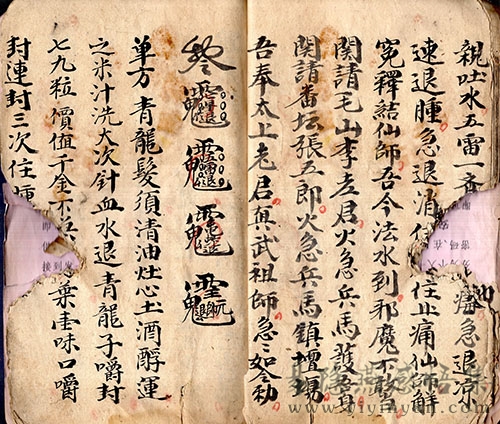 親吐水五雷一齊 痛急退涼
速退腫急退消住 住止痛仙師解
冤釋結仙師吾今法水到邪魔不敢
関請毛山李老君火急兵馬護吾身
関請番坛張五郎火急兵馬鎮壇場
吾奉太上老君與武祖師急如令勑
单方 青龍髮須清油灶心土酒醇運
之米汁洗大次針血水退青龍子嚼封
七九粒 價值千金不 葉壹味口嚼
封連封三次住